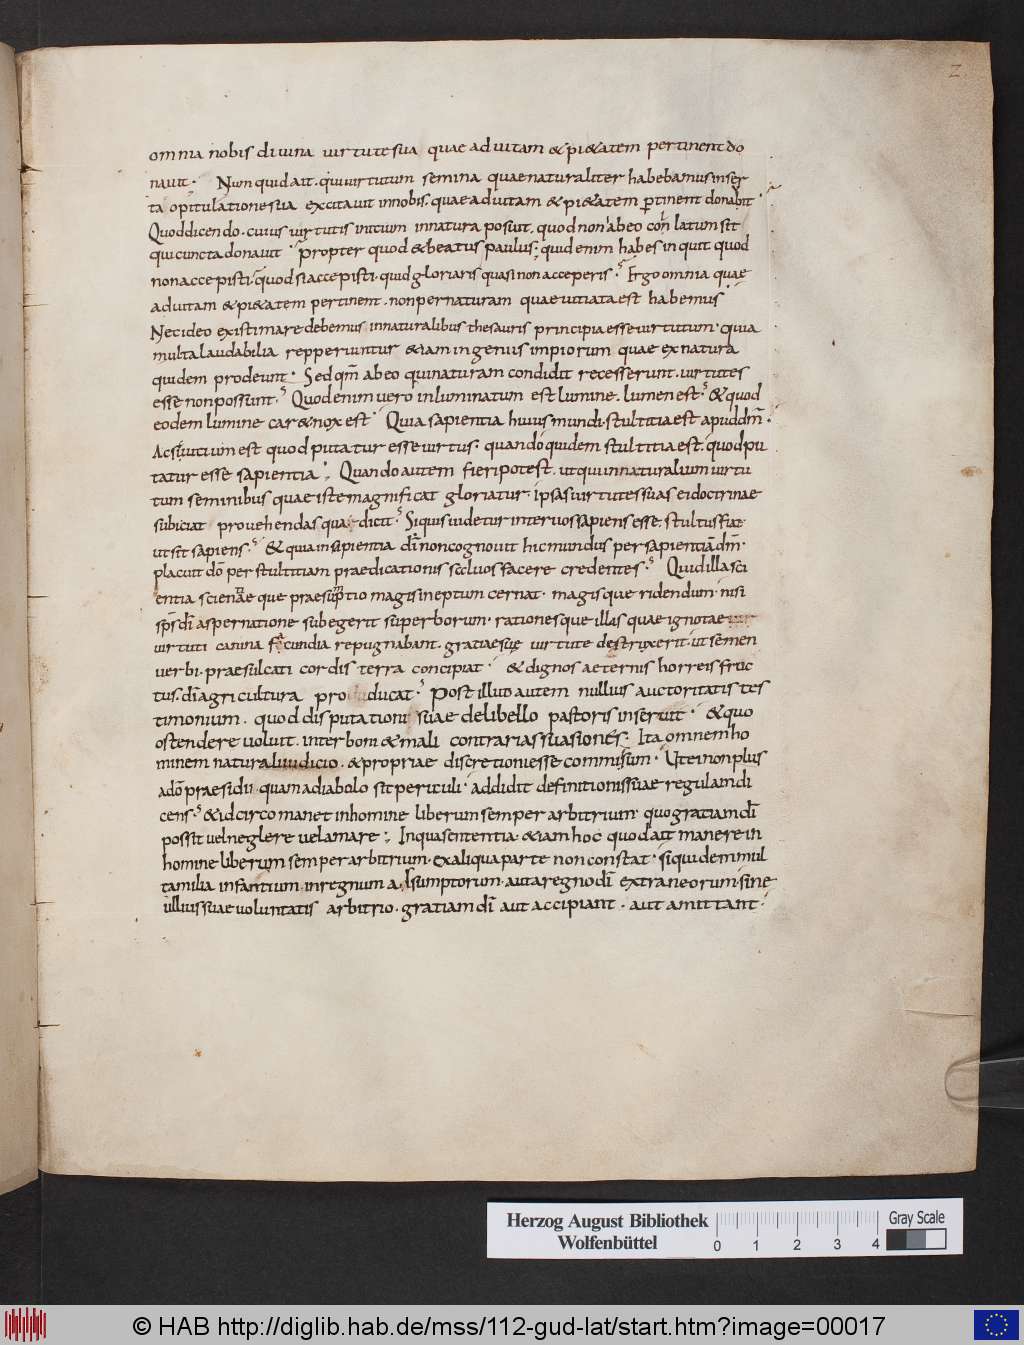 2
omnia nobis diuina uirtute sua quae ad uitam & pi&atem pertinent do
nauit. Numquid ait. qui uirtutum semina quae naturaliter habebamus inser
ta opitulatione sua excitauit in nobis. quae ad uitam & pi&atem ꝑtinent donabit
Quod dicendo. cuius uirtutis initium in natura posuit. quod non ab eo con latum sit
qui cuncta donauit. Propter quod & beatus paulus; quid enim habes inquit quod
non accepisti. quod si accepisti. quid gloriaris quasi non acceperis. Ergo omnia quae
ad uitam & pi&atem pertinent. non per naturam quae uitiata est habemus
Nec ideo existimare debemus in naturalibus thesauris principia esse uirtutum. quia
multa laudabilia repperiuntur &iam ingeniis impiorum quae ex natura
quidem prodeunt. Sed qm̄ ab eo qui naturam condidit recesserunt. uirtutes
esse non possunt. Quod enim uero inluminatum est lumine. lumen est. & quod
eodem lumine car& nox est. Quia sapientia huius mundi. stultitia est apud dm̄.
Ac sic uitium est quod putatur esse uirtus. quando quidem stultitia est. quod pu
tatur esse sapientia; Quando autem fieri potest. ut qui in naturalium uirtu
tum seminibus quae iste magnificat gloriatur. ipsas uirtutes suas ei doctrinae
subiciat prouehendas quae dicit. Siquis uidetur inter uos sapiens esse. stultus fiat
ut sit sapiens. & quia in sapientia dī non cognouit hic mundus per sapientiā dm̄.
placuit dō per stultitiam praedicationis saluos facere credentes. Quid illa sci
entia scientiae que praesumptio magis ineptum cernat. magisque ridendum. nisi
sp̄s dī aspernatione subegerit superborum. rationesque illas quae ignotae
uirtuti canina facundia repugnabant. gratiae suę uirtute destruxerit. ut semen
uerbi. praesulcati cordis terra concipiat. & dignos aeternis horreis fruc
tus. dī agricultura producat. Post illud autem nullius auctoritatis tes
timonium. quod disputationi suae de libello pastoris inseruit. & quo
ostendere uoluit. inter boni & mali contrarias suasiones. Ita omnem ho
minem naturali iudicio. & propriae discretioni esse commissum. Ut ei non plus
a dō praesidii. quam a diabolo sit periculi. addidit definitionis suae regulam di
cens. & idcirco manet in homine liberum semper arbitrium. quo gratiam dī
possit uel neglere uel amare; In qua sententia. &iam hoc quod ait manere in
homine liberum semper arbitrium. ex aliqua parte non constat. siquidem mul
ta milia infantium. in regnum adsumptorum. aut a regno dī extraneorum. sine
ullius suae uoluntatis arbitrio. gratiam dī aut accipiant. aut amittant.
Herzog August Bibliothek
Wolfenbüttel
Gray Scale
0 1 2 3 4
© HAB http://diglib.hab.de/mss/112-gud-lat/start.htm?image=00017